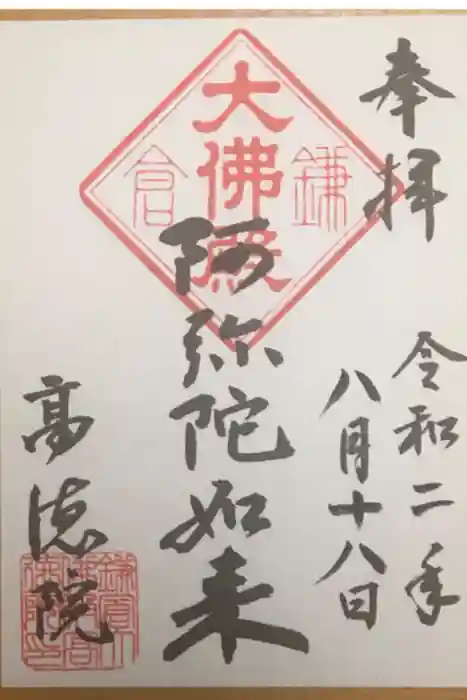 奉拝
令和二年
八月十八日
大佛殿
鎌倉
阿弥陀如来
高徳院